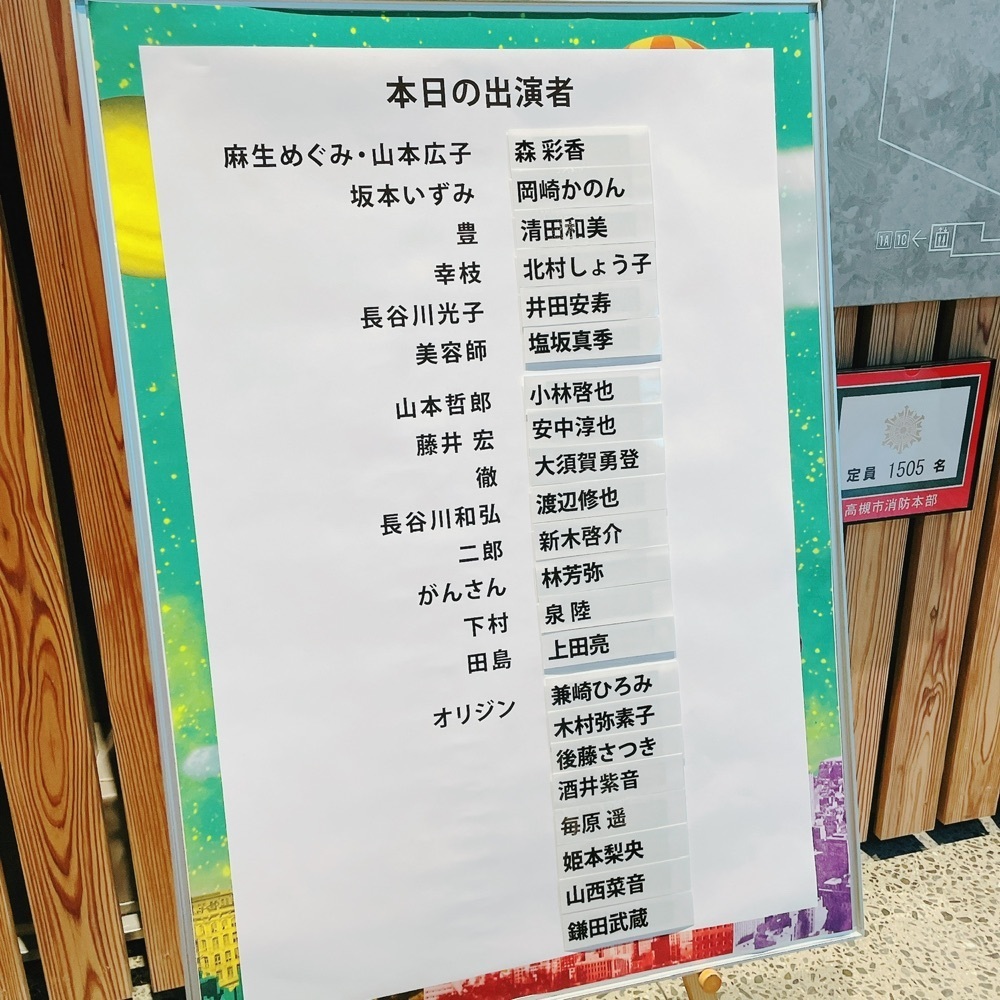 本日の出演者
麻生めぐみ・山本広子 森 彩香
坂本いずみ 岡崎かのん
豊 清田和美
幸枝 北村しょう子
長谷川光子 井田安寿
美容師 塩坂真季
山本哲郎 小林啓也
藤井 宏 安中淳也
徹 大須賀勇登
長谷川和弘 渡辺修也
二郎 新木啓介
がんさん 林芳弥
下村 泉 陸
田島 上田亮
オリジン 兼崎ひろみ
木村弥素子
後藤さつき
酒井紫音
毎原 遥
姫本梨央
山西菜音
鎌田武蔵
1A 1C
定員 1505 名
高槻市消防本部